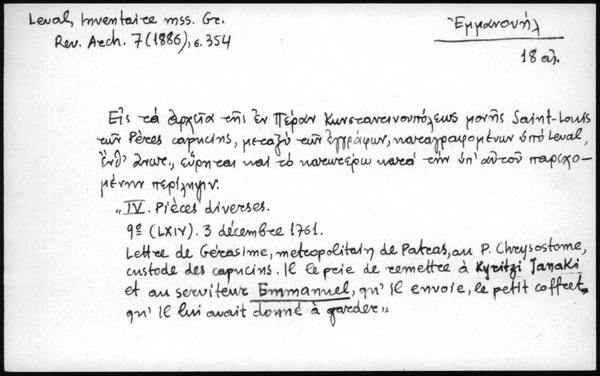 Leval, Inventaire mss. Gr.
Rev. Arch. 7 (1886), σ. 354
Ἐμμανουήλ
18 αἰ.
Εἰς τά ἀρχεῖα τῆς ἐν Πέραν Κωνσταντινουπόλεως μονῆς Saint-Louis
τῶν Pères capucins, μεταξύ τῶν ἐγγράφων, καταγραφομένων ὑπό Leval,
ἔνθ' ἀνωτ., εὕρηται καί τό κατωτέρω κατά τήν ὑπ' αὐτοῦ παρεχο-
μένην περίληψιν:
„IV. Pièces diverses.
9º (LXIV). 3 décembre 1761.
Lettre de Gérasime, metropolitain de Patras, au P. Chrysostome,
custode des capucins. Il le prie de remettre à Kyritzi Janaki
et au serviteur Emmanuel, qu' il envoie, le petit coffret
qu' il lui avait donné à garder„